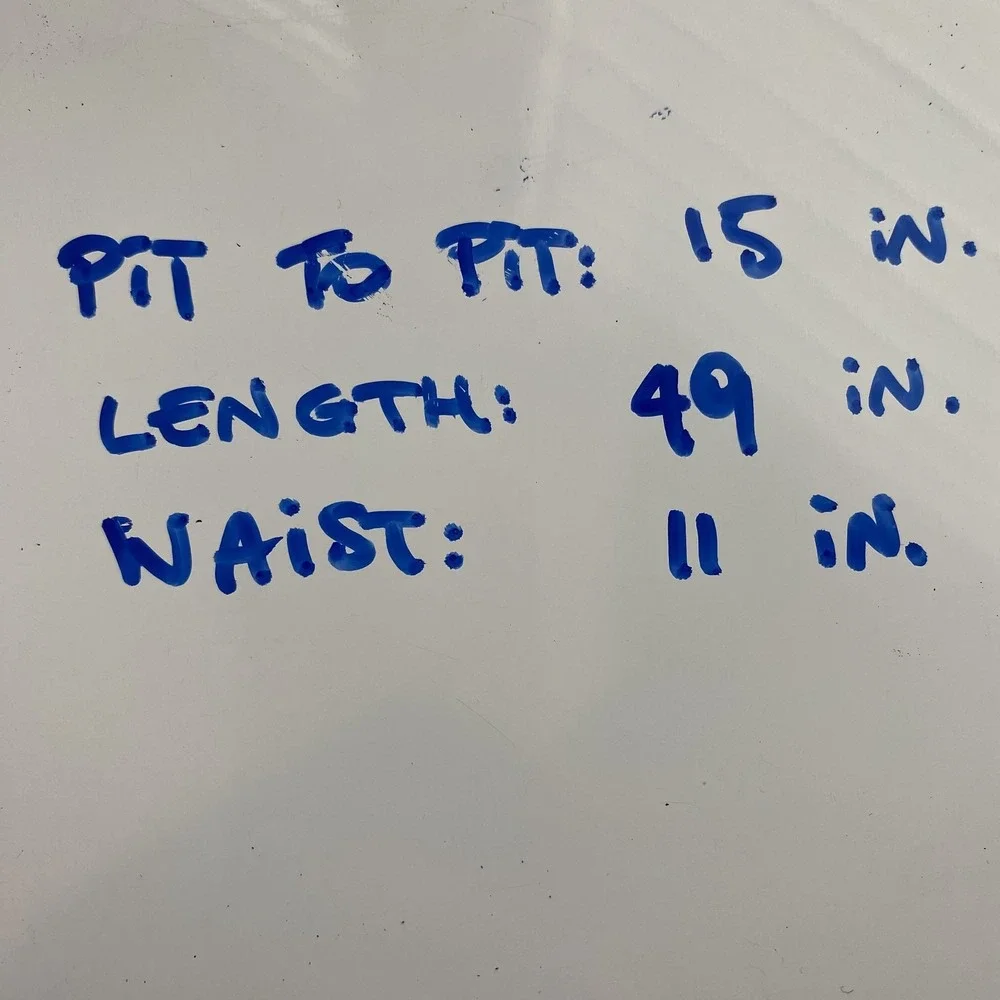 PiT TO PiT: 15 iN.
LENGTH: 49 iN.
WAiST: 11 iN.